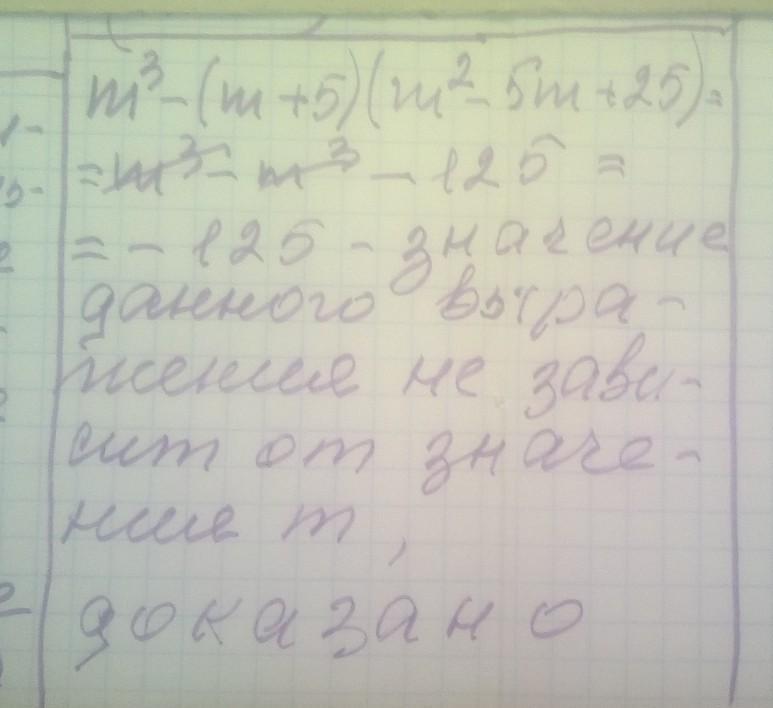 m³-(m+5)(m²-5m+25)=
=m³-m³-125=
=-125-значение
данного выра-
жения не зави-
сит от значе-
ния m,
доказано